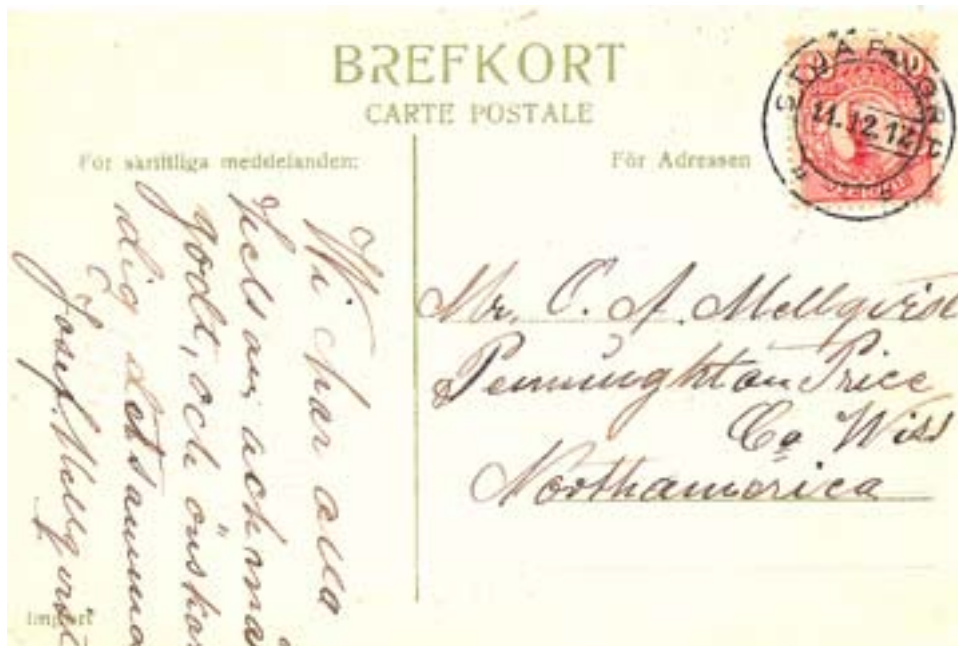 BREFKORT
CARTE POSTALE
För skriftliga meddelanden:
För Adressen
11.12.12
Wi har alla
helsan och må
godt, och önskar
dig detsamma
Josef Mellqvist
Mr. C. A. Mellqvist
Penninghton Price
Co Wiss
Northamerica
Import